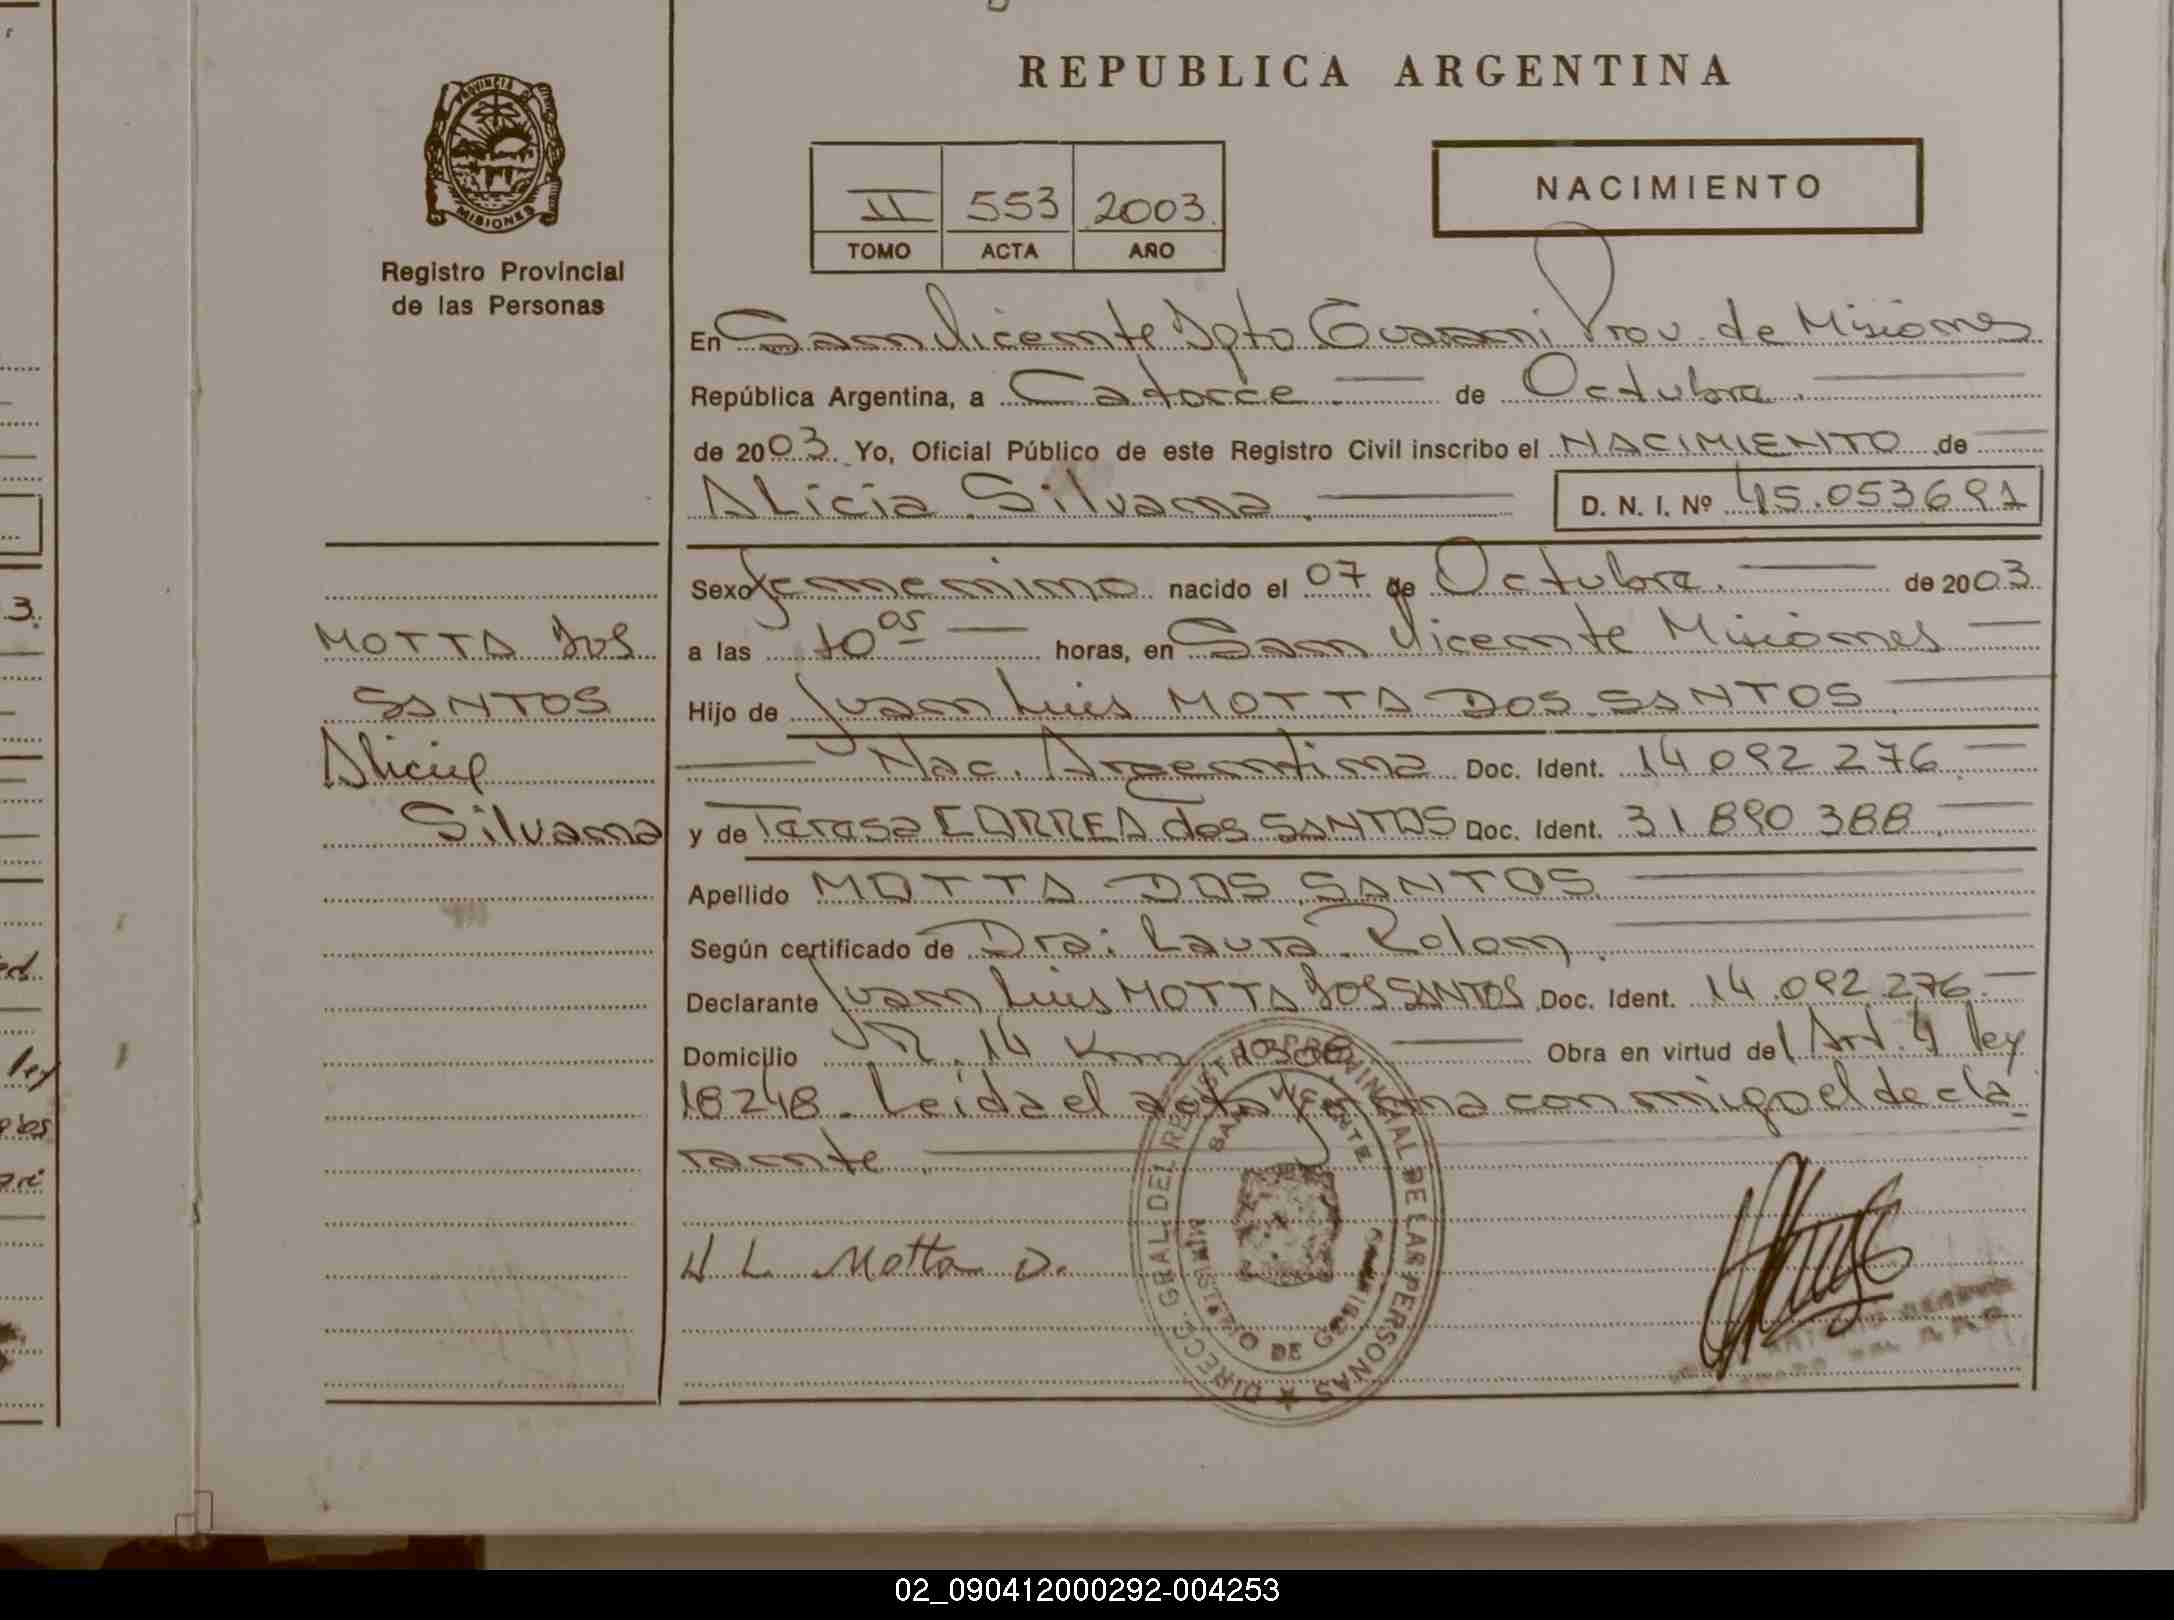 REPUBLICA ARGENTINA
PROVINCIA DE
MISIONES
Registro Provincial
de las Personas
II 553 2003
TOMO ACTA AÑO
NACIMIENTO
En San Vicente Dpto Guarani Prov. de Misiones
República Argentina, a Catorce de Octubre
de 2003. Yo, Oficial Público de este Registro Civil inscribo el NACIMIENTO de
Alicia Silvana D. N. I. Nº 45.053691
Sexo femenino nacido el 07 de Octubre. de 2003.
a las 10 05 horas, en San Vicente Misiones
Hijo de Juan Luis MOTTA DOS SANTOS
Nac. Argentina Doc. Ident. 14 092 276
y de Teresa CORREA dos SANTOS Doc. Ident. 31 890 388
Apellido MOTTA DOS SANTOS
Según certificado de Dra: Laura Rolon
Declarante Juan Luis MOTTA DOS SANTOS Doc. Ident. 14.092.276
Domicilio R. 14 Km Obra en virtud del Art. 4 ley
18248. Leida el acta firma conmigo el decla
rante
MOTTA DOS
SANTOS
Alicia
Silvana
L. Motta D.
DIRECC. GRAL. DEL REGISTRO PROVINCIAL DE LAS PERSONAS
SAN VICENTE
MINISTERIO DE GOBIERNO
3.
ley
02_090412000292-004253